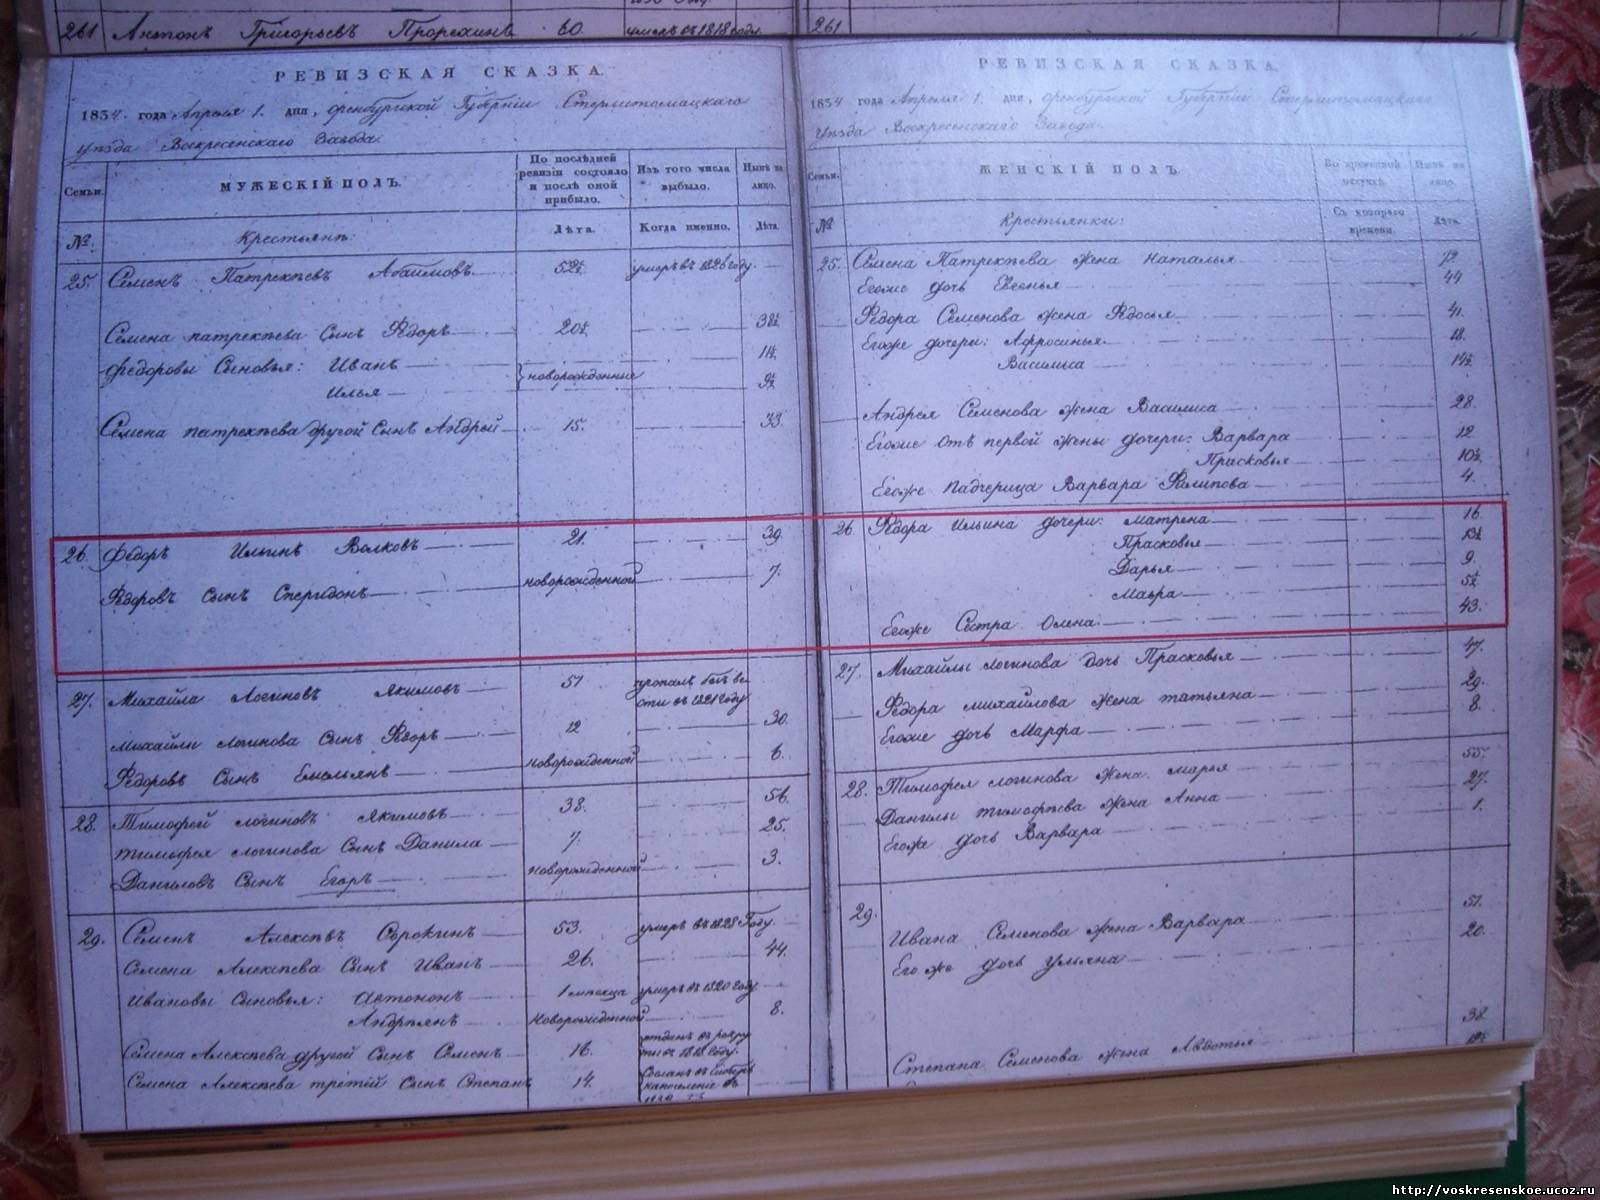 261 Антонъ Григорьевъ Прорехинъ 60. умеръ въ 1818 году. 261
РЕВИЗСКАЯ СКАЗКА.
1834. года Апреля 1. дня, оренбургской Губерніи Стерлитомацкаго
уѣзда Воскресенскаго Завода.
Семьи. МУЖЕСКІЙ ПОЛЪ. По послѣдней ревизіи состояло и послѣ оной прибыло. Изъ того числа выбыло. Нынѣ на лицо.
№: Крестьянѣ: Лѣта. Когда именно. Лѣта.
25. Семенъ Патрекѣевъ Абаимовъ 52½ умеръ въ 1826 году.
Семена патрекѣева Сынъ Ѳедоръ 20½ 38½
Федоровы Сыновья: Иванъ новорожденные 11½
Илья 9½
Семена патрекѣева другой Сынъ Андрей 15. 33.
26. Федоръ Ильинъ Волковъ 21. 39.
Ѳедоровъ Сынъ Спиридонъ новорожденной 7.
27. Михайла Логиновъ Якимовъ 51 пропалъ безъ вести въ 1821 году
Михайлы Логинова Сынъ Ѳедоръ 12 30.
Ѳедоровъ Сынъ Емельянъ новорожденной 6.
28. Тимофей логиновъ Якимовъ 38. 56.
тимофея логинова Сынъ Данила 7. 25.
Даниловъ Сынъ Егоръ новорожденной 3.
29. Семенъ Алексѣвъ Сорокинъ 53. умеръ въ 1828 Году.
Семена Алексѣева Сынъ Иванъ 26. 44.
Ивановы Сыновья: Автономъ 1 мѣсяца умеръ въ 1820 году
Андреянъ Новорожденной 8.
Семена Алексѣева другой Сынъ Семенъ 16. отданъ въ рекруты въ 1818 году.
Семена Алексѣева третій Сынъ Степанъ 14. Сосланъ въ Сибирь на поселеніе въ
РЕВИЗСКАЯ СКАЗКА.
1834 года Апреля 1. дня, оренбургской Губерніи Стерлитомацкаго
уѣзда Воскресенскаго Завода.
Семьи. ЖЕНСКІЙ ПОЛЪ. Во временной отлучкѣ. Нынѣ на лицо.
№ Крестьянки: Съ котораго времени. Лѣта.
25. Семена Патрекѣева жена Наталья 72
Егоже дочь Евгенья 44
Ѳедора Семенова жена Ѳедосья 41.
Егоже дочери: Афросинья 18.
Василиса 14½
Андрея Семенова жена Василиса 28.
Егоже отъ первой жены дочери: Варвара 12
Прасковья 10½
Егоже Падчерица Варвара Филипова 4.
26. Ѳедора Ильина дочери: Матрена 16
Прасковья 13½
Дарья 9.
Мавра 5½
Егоже Сестра Олена: 43.
27. Михайлы логинова дочь Прасковья 47.
Ѳедора михайлова жена татьяна 29.
Егоже дочь Марфа 8.
28. Тимофея логинова жена Марья 55.
Данилы тимофѣева жена Анна 27.
Егоже дочь Варвара 1.
29. Ивана Семенова жена Варвара 51.
Его же дочь ульяна 20.
Степана Семенова жена Авдотья 38.
http://voskresenskoe.ucoz.ru